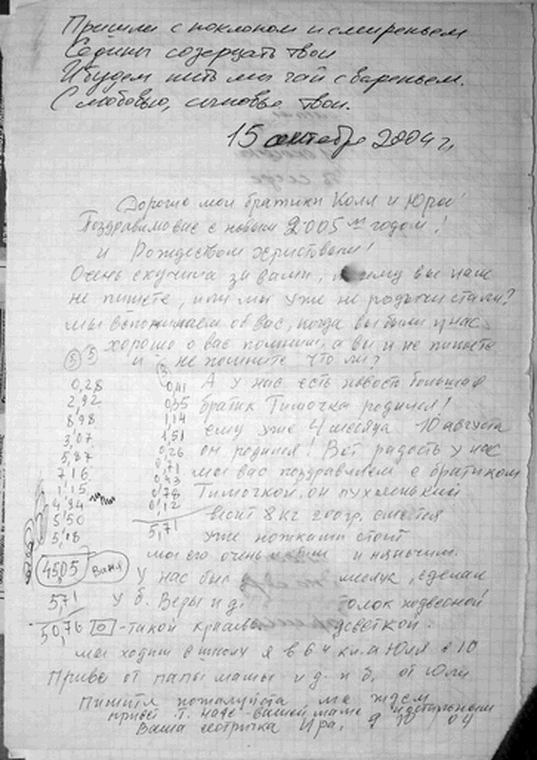 Пришли с поклоном и смиреньем
Седины созерцать твои
И будем пить мы чай с вареньем.
С любовью, сыновья твои.
15 октября 2004 г.
Дорогие мои братики Коля и Юра!
Поздравляю вас с новым 2005 м годом!
и Рождеством христовым!
Очень скучила за вами, почему вы нам
не пишете, или мы уже не родычи стали?
мы вспоминаем об вас, когда вы были у нас,
хорошо о вас помним, а вы и не пишете
5 5 и не помните что ли?
0,28 0,41 А у нас есть новость большая
2,92 0,35 братик Тимочка родился!
8,98 1,14 ему уже 4 месяца 10 августа
3,07 1,51 он родился! Вот радость у нас
5,87 0,26 мы вас поздравляем с братиком
7,16 0,71 Тимочкой, он пухленький
1,15 0,43 весит 8 кг 200 гр. смеётся
4,94 0,78 уже ножками стоит
5,50 0,12 мы его очень и нянчим.
5,18 5,71
45,05 Ваня У нас был сделал
5,71 у б. Веры и д. подвесной
50,76 -такой красивый
мы ходим в школу я в 6 кл. а Юля в 10
Привет от папы мамы и д. и б, от Юли
Пишите пожалуйста мы ждем
привет т. Наде - вашей маме
Ваша сестричка Ира, 9 10 04